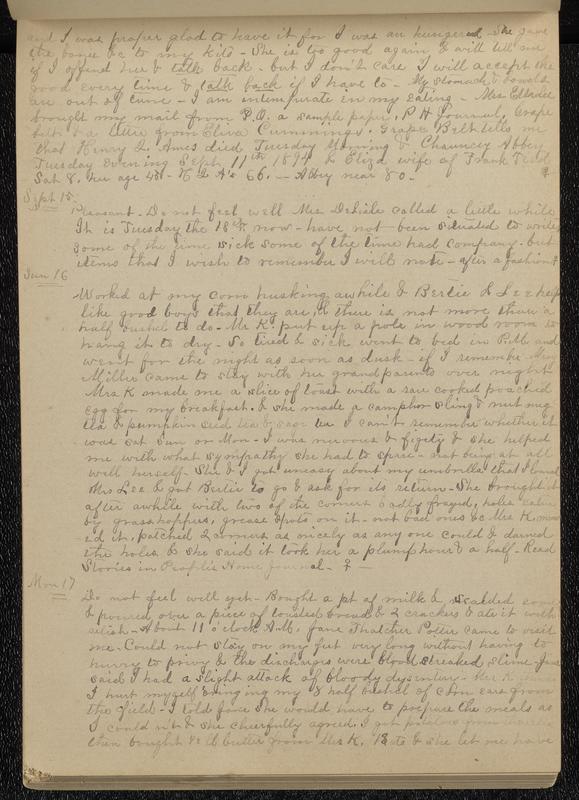 and I was proper glad to have it for I was an hungered - She gave
the bones &c to my kits - She is too good again & will tell me
if I offend her & talk back - but I don't care I will accept the
good every time & talk back if I have to - My stomach & bowels
are out of tune - I am intemperate in my eating - Mrs
brought my mail from P.O. a sample paper, P H Journal, Grape
belt & a letter from Eliza Cummings. Grape Belt tells me
that Henry L. Ames died Tuesday Morning & Chauncey Abbey
Tuesday evening Sept. 11th 1894 & Eliza wife of Frank
Sat 8. her age 48 - H L A's 66. - Abbey near 80 -
Sept 15
Pleasant - Do not feel well Mrs Delisle called a little while
It is Tuesday the 18th now - have not been situated to write
some of the time sick some of the time had company - but
items that I wish to remember I will note - after a fashion
Sun 16
Worked at my corn husking awhile & Bertie & Lee help
like good boys that they are, & there is not more than a
half bushel to do - Mr K. put up a pole in wood room to
hang it to dry - So tired & sick went to bed in P.M. and
went for the night as soon as dusk - if I remember Miss
Miller came to stay with her grandparents over night
Mrs K made me a slice of toast with a rare cooked poached
egg for my breakfast. & she made a camphor sling & nutmeg
tea & pumpkin seed tea & sage tea & can't remember whether it
was Sat Sun or Mon - I was nervous & figity & she helped
me with what sympathy she had to spare - not being at all
well herself - She & I got uneasy about my umbrella that I loaned
Mrs Lee & got Bertie to go & ask for its return - She brought it
after awhile with two of the corners badly frayed, holes eaten
by grasshoppers, grease spots on it - not bad ones &c Mrs K. mend
ed it, patched 2 corners as nicely as any one could & darned
the holes & she said it took her a plump hour & a half - Read
Stories in People's Home Journal -
Mon 17
Do not feel well yet - Bought a pt of milk & scalded some
& poured over a piece of toasted bread & 2 crackers & ate it with
relish - About 11 o'clock A.M. Jane Thatcher Potter came to visit
me - Could not stay on my feet very long without having to
hurry to privy & the discharges were blood streaked, slime - Jane
said I had a slight attack of bloody dysentery - Mrs K
I hurt myself bringing my 8 half bushel of corn ears from
the field - I told Jane she would have to prepare the meals as
I could not & she cheerfully agreed. I got potatoes from
then bought ½ lb butter from Mrs K. 13cts & she let me have